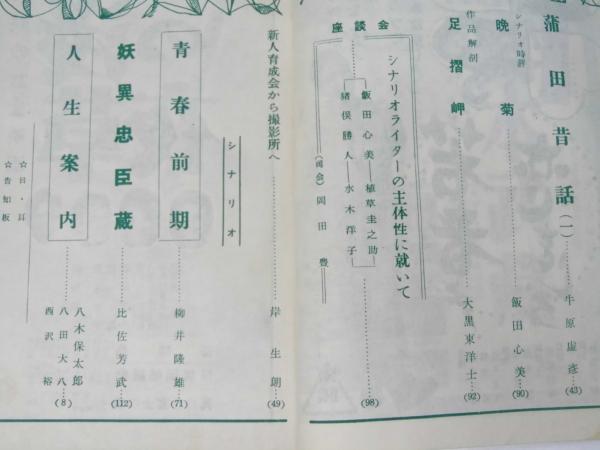 蒲田昔話(一)……牛原虚彦(43)
シナリオ時評
晩菊……飯田心美(90)
作品解剖
足摺岬……大黒東洋士(92)
座談会
シナリオライターの主体性に就いて……(98)
飯田心美 植草圭之助
猪俣勝人 水木洋子
(司会)岡田豊
新人育成会から撮影所へ……岸生朗(49)
シナリオ
青春前期……柳井隆雄(71)
妖異忠臣蔵……比佐芳武(112)
人生案内……八木保太郎
八田大八
西沢裕(8)
☆目・耳
☆告知板